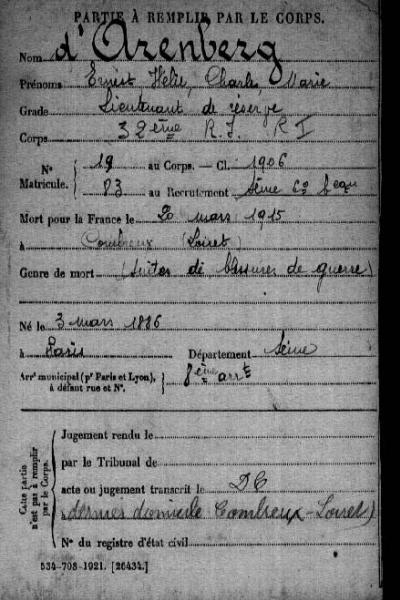 PARTIE À REMPLIR PAR LE CORPS.
Nom d'Arenberg
Prénoms Ernest, Hélie, Charles, Marie
Grade Lieutenant de réserve
Corps 32ème R.I. R I
N° Matricule. { 19 au Corps. — Cl. 1906
83 au Recrutement Seine 6e beau
Mort pour la France le 20 mars 1915
à Combreux (Loiret)
Genre de mort (Suites de blessures de guerre)
Né le 3 mars 1886
à Paris Département Seine
Arrt municipal (pr Paris et Lyon), à défaut rue et N°. } 8ème arrt
Cette partie n'est pas à remplir par le Corps.
Jugement rendu le
par le Tribunal de
acte ou jugement transcrit le DC
dernier domicile Combreux - Loiret)
N° du registre d'état civil
534-708-1921. [26434.]